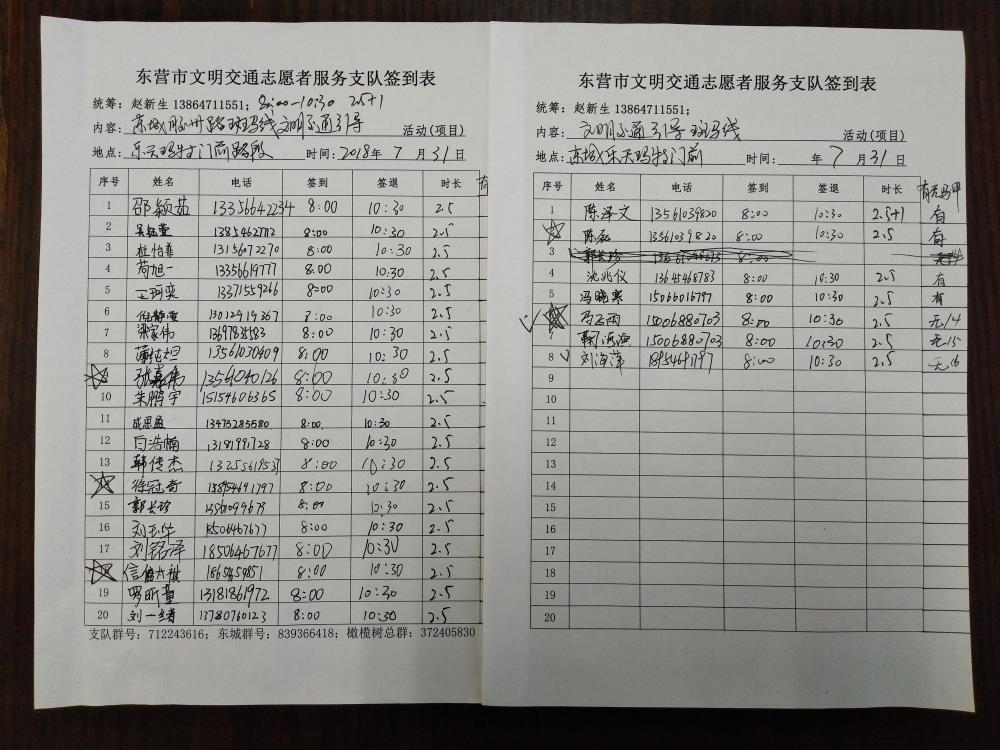 东营市文明交通志愿者服务支队签到表
统筹：赵新生 13864711551； 8:00-10:30 2.5+1
内容：东城胶州路斑马线文明交通引导 活动(项目)
地点：乐天玛特门前路段 时间：2018年 7 月 31 日
序号 姓名 电话 签到 签退 时长
1 邵颖茹 13356642234 8:00 10:30 2.5
2 1385462772 8:00 10:30 2.5
3 杜怡菲 13156072270 8:00 10:30 2.5
4 芮旭一 13356619777 8:00 10:30 2.5
5 王珂奕 13371559266 8:00 10:30 2.5
6 倪静雯 8:00 10:30 2.5
7 梁家伟 13697835583 8:00 10:30 2.5
8 13561030409 8:00 10:30 2.5
张嘉伟 13561040126 8:00 10:30 2.5
10 朱鹏宇 15154606365 8:00 10:30 2.5
11 成思孟 13475285580 8:00 10:30 2.5
12 闫浩楠 13181991728 8:00 10:30 2.5
13 韩传杰 13255619537 8:00 10:30 2.5
徐冠奇 8:00 10:30 2.5
15 郭长珍 8:00 10:30 2.5
16 刘玉华 18506467677 8:00 10:30 2.5
17 刘铭泽 18506467677 8:00 10:30 2.5
8:00 10:30 2.5
19 罗昕萱 13181861972 8:00 10:30 2.5
20 刘一绪 13780760123 8:00 10:30 2.5
支队群号：712243616；东城群号：839366418；橄榄树总群：372405830
东营市文明交通志愿者服务支队签到表
统筹：赵新生 13864711551；
内容：文明交通引导斑马线 活动(项目)
地点：东城乐天玛特门前 时间： 年 7 月 31 日
序号 姓名 电话 签到 签退 时长 有无马甲
1 陈泽文 13561039820 8:00 10:30 2.5+1 有
陈磊 13561039820 8:00 10:30 2.5 有
3 郭长珍 8:00
4 沈兆仪 13645468783 8:00 10:30 2.5 有
5 冯晓寒 15066016797 8:00 10:30 2.5 有
15006880703 8:00 10:30 2.5 无14
7 15006880703 8:00 10:30 2.5 无15
8 刘海萍 18954691797 8:00 10:30 2.5 无16
9
10
11
12
13
14
15
16
17
18
19
20